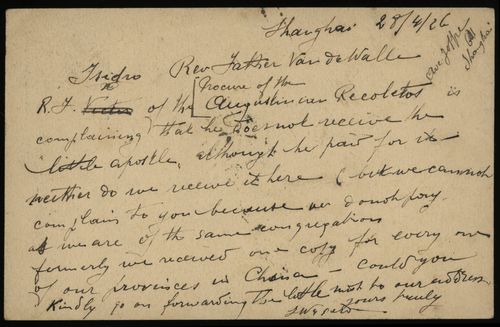 Shanghai 28/4/26
Rev Father Van de Walle
Isidro
Procure of the
R. F. of the Augustinian Recoletos is
complaining that he does not receive the
little apostle, although he paid for it
neither do we receive it here (but we cannot
complain to you because we do not pay
as we are of the same congregation
formerly we received one copy for every one
of our provinces in China – Could you
Kindly go on forwarding the little to our address
yours truly
Shanghai